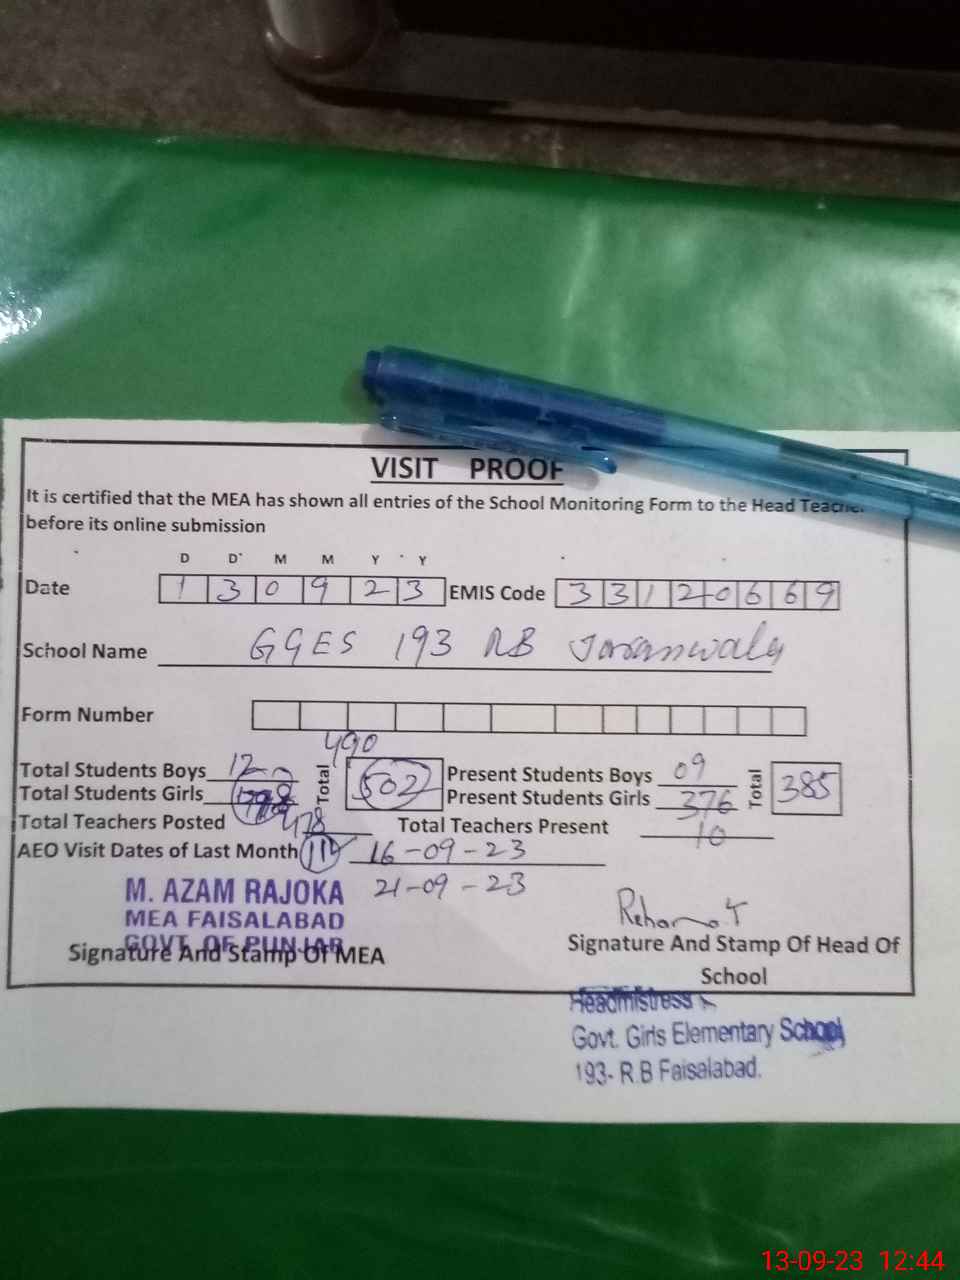 VISIT PROOF
It is certified that the MEA has shown all entries of the School Monitoring Form to the Head Teacher
before its online submission
D D M M Y Y
Date 1 3 0 9 2 3 EMIS Code 3 3 1 2 0 6 6 9
School Name GGES 193 RB Jaranwala
Form Number
490
Total Students Boys 12 Total 502 Present Students Boys 09 Total 385
Total Students Girls 478 Present Students Girls 376
Total Teachers Posted 11 Total Teachers Present 10
AEO Visit Dates of Last Month 16-09-23
21-09-23
M. AZAM RAJOKA
MEA FAISALABAD
GOVT. OF PUNJAB
Signature And Stamp Of MEA
Signature And Stamp Of Head Of
School
Headmistress
Govt. Girls Elementary School
193- R.B Faisalabad.
13-09-23 12:44